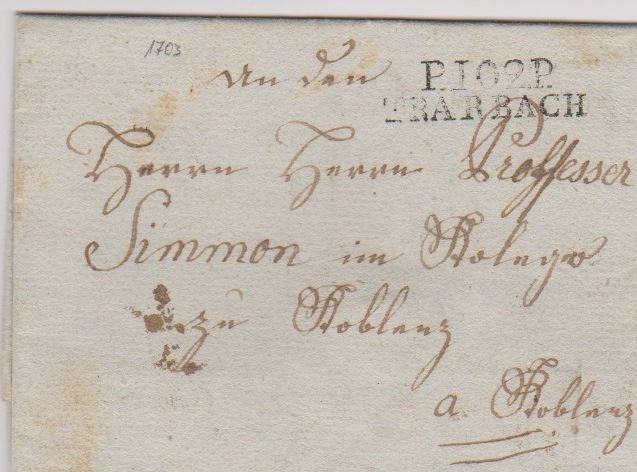 1703
An den
P.102.P.
TRARBACH
Herrn Herrn Proffesser
Simmon im Kolegio
zu Koblenz
a Koblenz